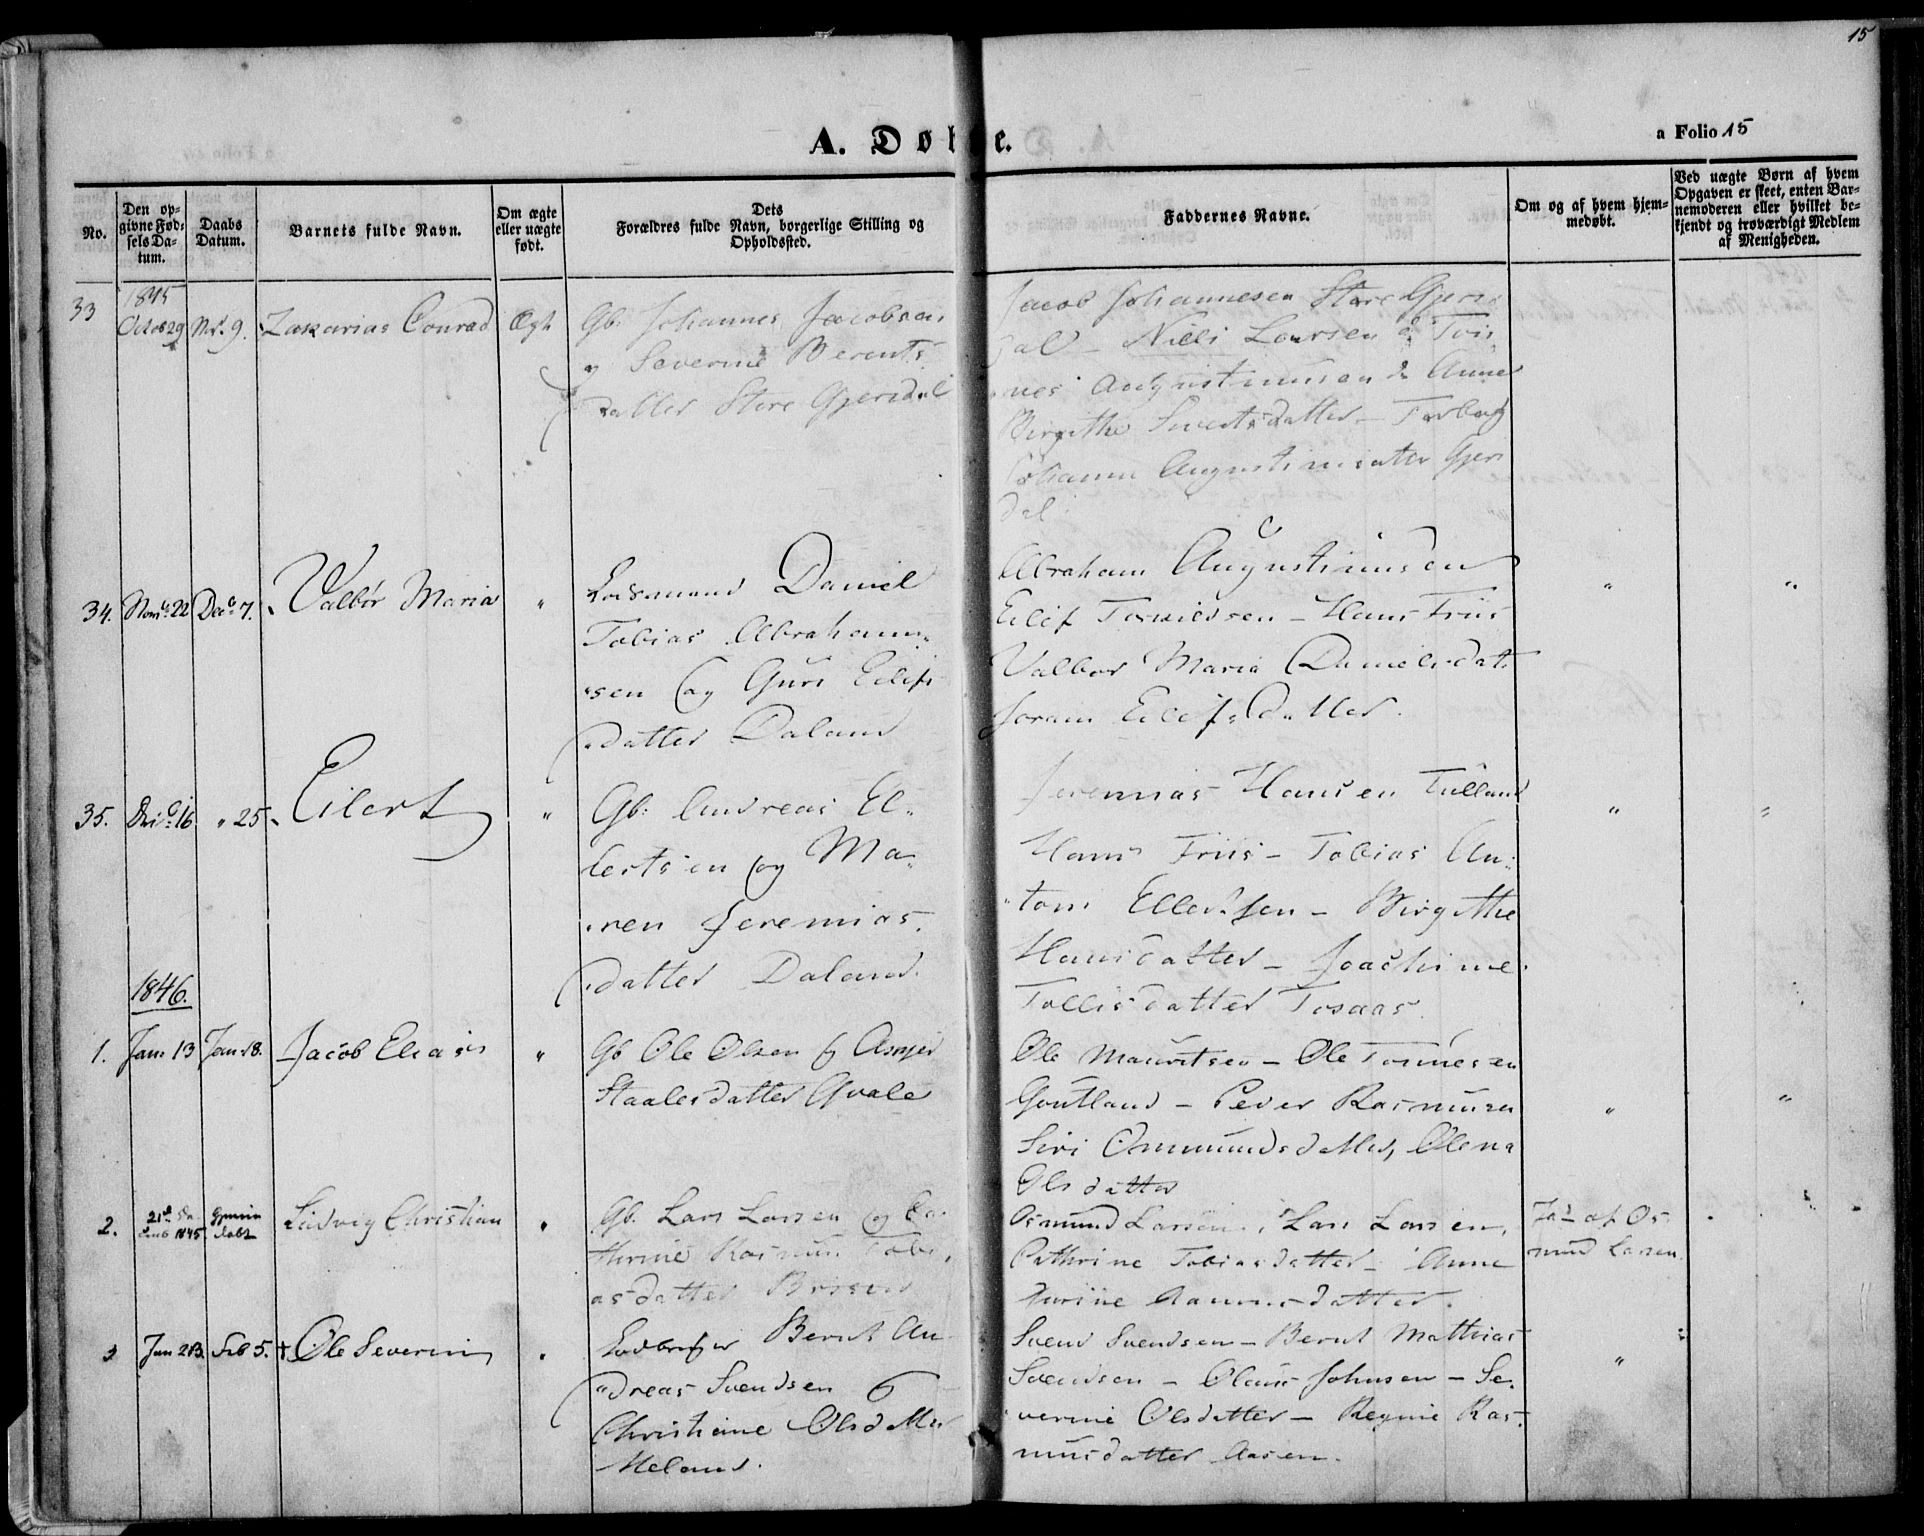 15
A. Døbte.
a Folio 15
No.
Den op-
givne Fød-
sels Da-
tum.
Daabs
Datum.
Barnets fulde Navn.
Om ægte
eller uægte
født.
Dets
Forældres fulde Navn, borgerlige Stilling og
Opholdssted.
Faddernes Navne.
Om og af hvem hjem-
medøbt.
Ved uægte Børn af hvem
Opgaven er skeet, enten Bar-
nemoderen eller hvilket be-
kjendt og troværdigt Medlem
af Menigheden.
1845
33 Octob 29 Nv. 9. Zakarias Conrad Ægte
Gb. Johannes Jacobsen
og Severine Berents
datter Store Gjersdal
Jacob Johannesen Store Gjers
dal - Niels Laursen
nes Augustinusen Anne
Birgithe Sivertsdatter - Torborg
Johanne Augustinusdatter Gjers
dal.
34. Novbr 22 Decbr 7. Valbor Maria "
Lodsmand Daniel
Tobias Abraham-
sen og Guri Eilifs
datter Daland
Abraham Augustinusen
Eilif Torkildsen - Hans Friis
Valbor Maria Danielsdat.
Joran Eilifsdatter.
" "
35. 16 " 25 Eilert "
Gb. Andreas El-
lertsen og Ma-
ren Jeremias-
datter Daland.
Jeremias Hansen Tulland
Hans Friis - Tobias An-
ton Ellertsen - Birgithe
Hansdatter - Joachime
Tollisdatter Tosaas.
" "
1846.
1. Jan. 13 Jan 18. Jacob Elias "
Gb Ole Olsen og Asnjer
Staalesdatter Qvale
Ole Mauritsen - Ole Tonnesen
Goutland - Peder Rasmusen
Siri Ommundsdatter, Olena
Olsdatter
" "
2. 21de De
cemb 1845 Hjemme
døbt Ludvig Christian "
Gb. Lars Larsen og Ca-
thrine Rasmus Tobi-
asdatter
Osmund Larsen, Lars Larsen,
Cathrine Tobiasdatter - Anne
datter.
Ja - af Os-
mund Larsen
3 Jan 28. Feb 5. + Ole Severin "
Bernt An-
dreas Svendsen og
Christiane Olsdatter
Meland.
Svend Svendsen - Bernt Mathias
Svendsen - Olaus Johnsen - Se-
verine Olsdatter - Regine Ras-
musdatter Aasen.
"